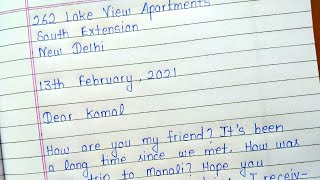 262 Lake View Apartments
South Extension
New Delhi
13th February, 2021
Dear Kamal
How are you my friend? It's been
a long time since we met. How was
trip to Manali? Hope you
I receiv-